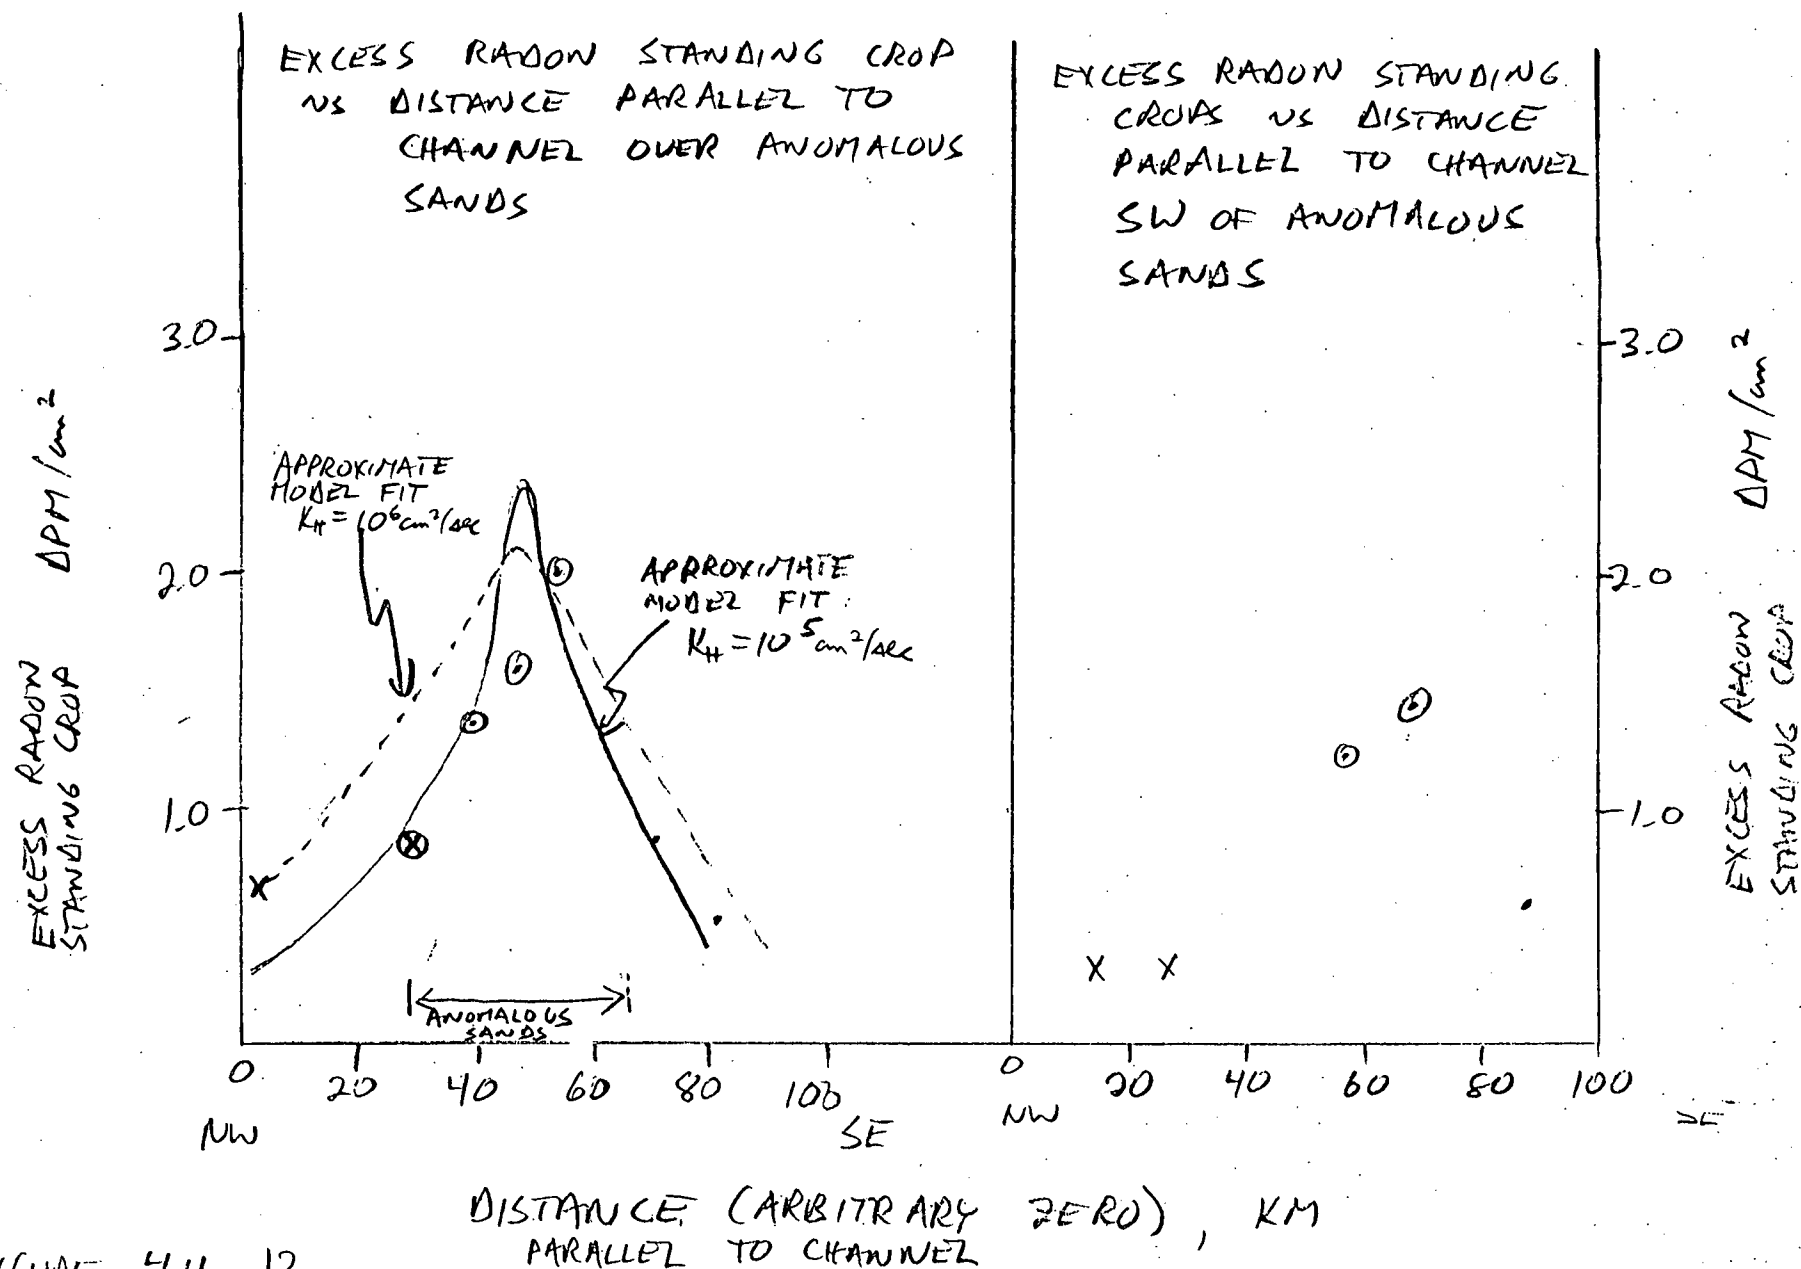 EXCESS RADON STANDING CROP
VS DISTANCE PARALLEL TO
CHANNEL OVER ANOMALOUS
SANDS
EXCESS RADON STANDING
CROPS VS DISTANCE
PARALLEL TO CHANNEL
SW OF ANOMALOUS
SANDS
3.0
2.0
1.0
EXCESS RADON
STANDING CROP
DPM/cm²
APPROXIMATE
MODEL FIT
K_H = 10⁶ cm²/sec
APPROXIMATE
MODEL FIT
K_H = 10⁵ cm²/sec
ANOMALOUS
SANDS
0 20 40 60 80 100
NW SE
3.0
2.0
1.0
EXCESS RADON
STANDING CROP
DPM/cm²
0 20 40 60 80 100
NW SE
DISTANCE (ARBITRARY ZERO), KM
PARALLEL TO CHANNEL